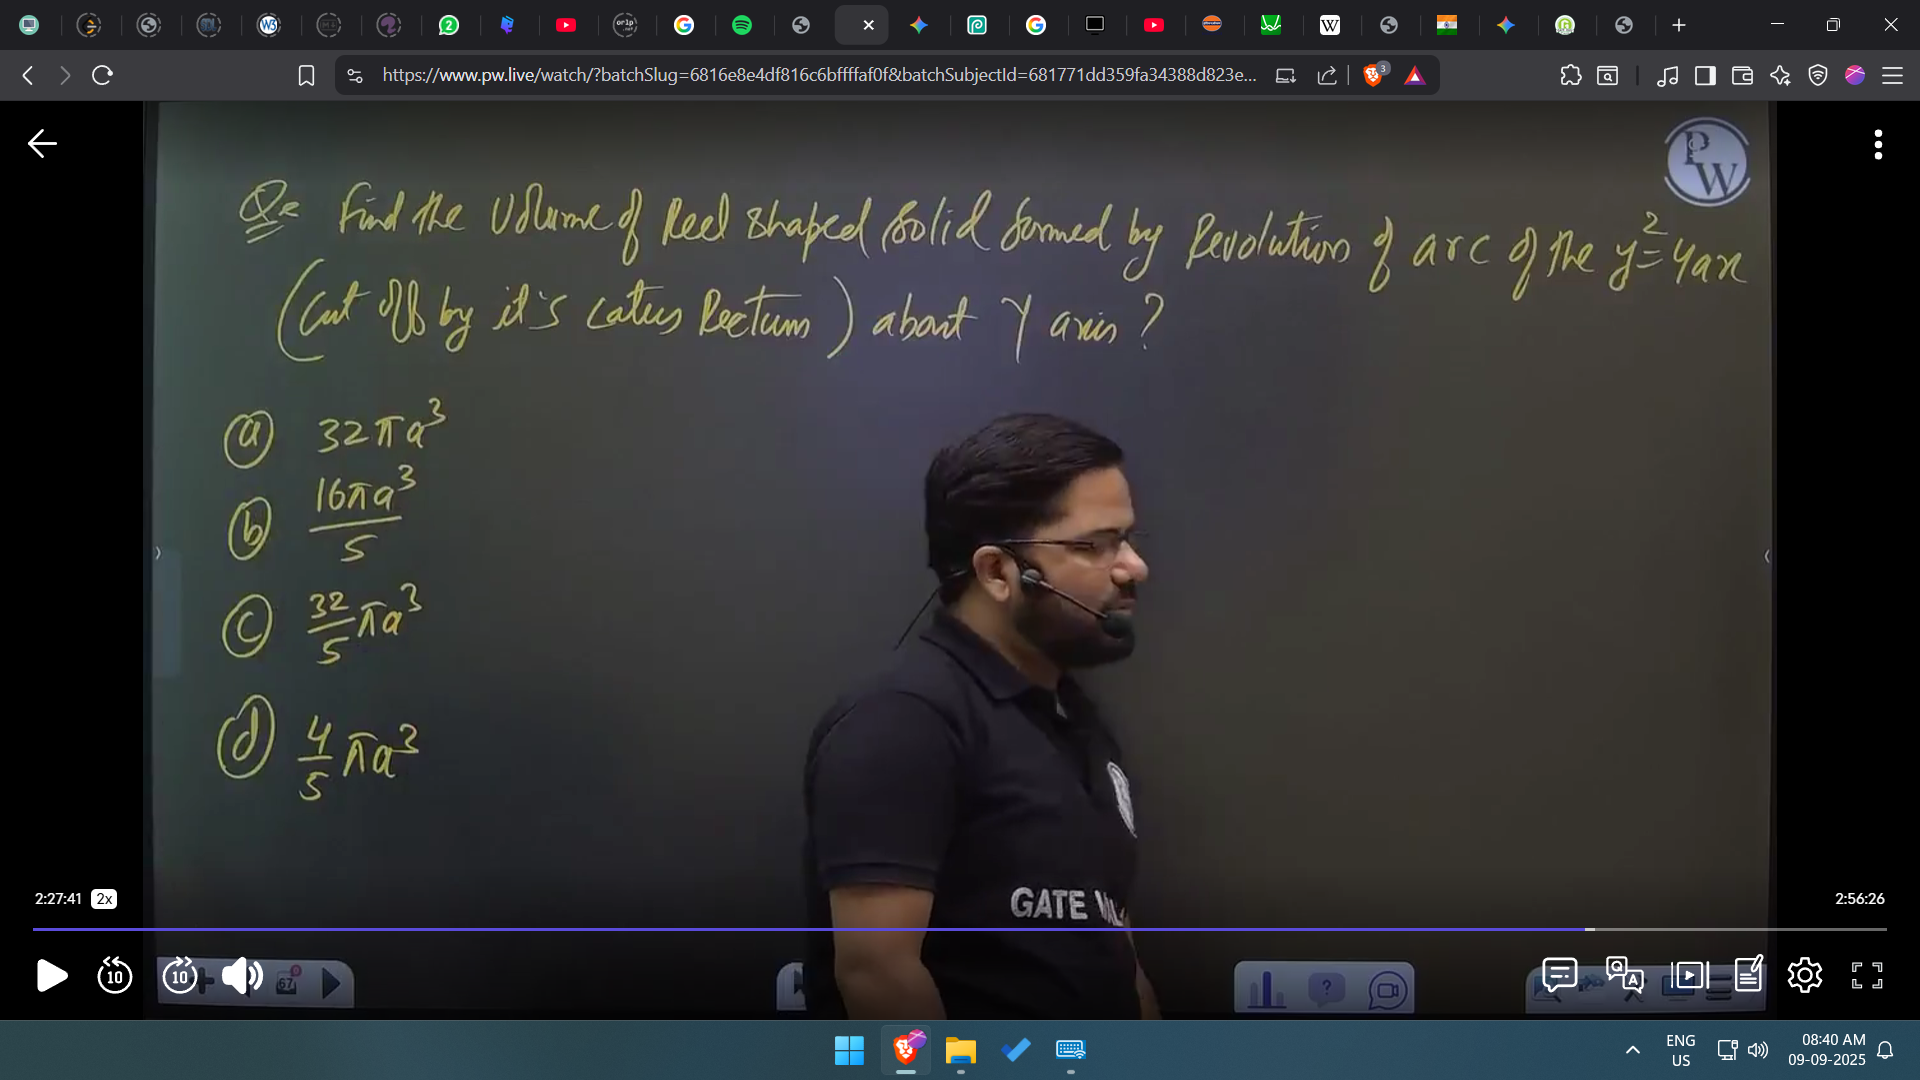 https://www.pw.live/watch/?batchSlug=6816e8e4df816c6bffffaf0f&batchSubjectId=681771dd359fa34388d823e...
3
PW
Q= Find the Volume of Reel shaped solid formed by Revolution of arc of the y²=4ax
(Cut off by it's Latus Rectum) about Y axis?
(a) 32πa³
(b) 16πa³/5
(c) 32/5 πa³
(d) 4/5 πa³
GATE
2:27:41 2x
2:56:26
10 10
67
ENG
US
08:40 AM
09-09-2025